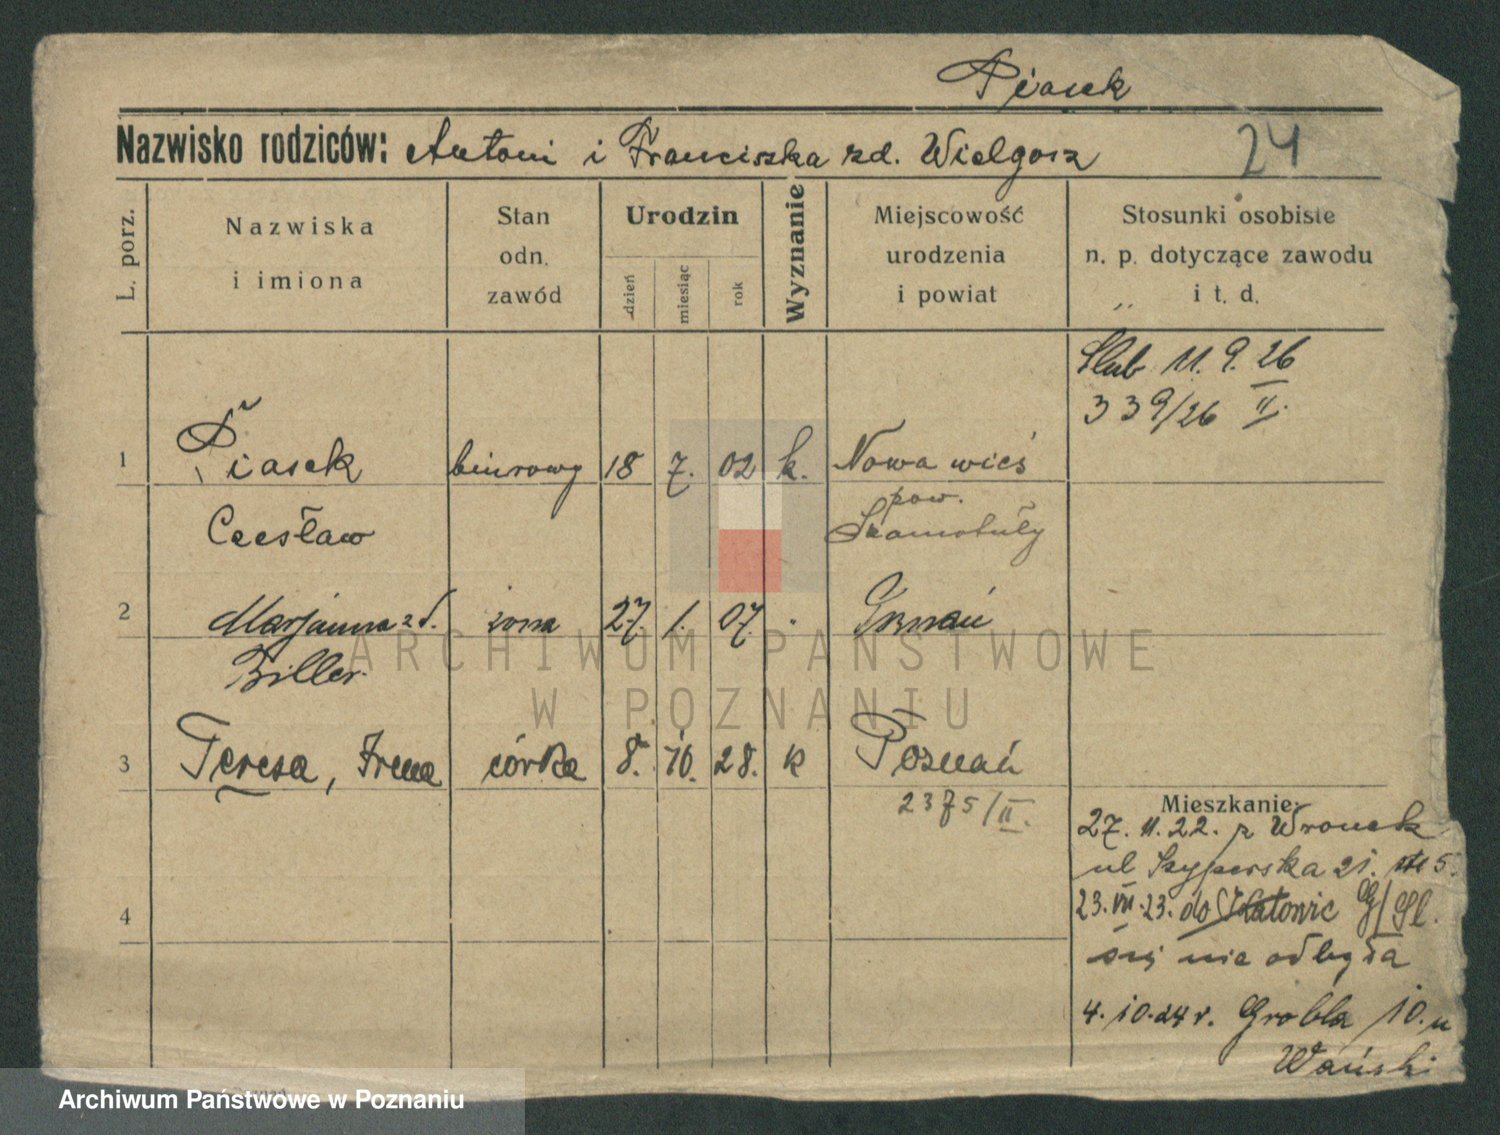 Piasek
Nazwisko rodziców: Antoni i Franciszka zd. Wielgosz
24
L. porz.
Nazwiska
i imiona
Stan
odn.
zawód
Urodzin
dzień
miesiąc
rok
Wyznanie
Miejscowość
urodzenia
i powiat
Stosunki osobiste
n. p. dotyczące zawodu
i t. d.
Ślub 11. 9. 26
339/26 II.
1 Piasek biurowy 18 7. 02 k. Nowa wieś
pow.
Czesław Szamotuły
2 Marjanna zd. żona 27. 1. 07. "
Ziller
3 Teresa, Irena córka 8. 10. 28. k Poznań
2375/II.
Mieszkanie:
27. 11. 22. z Wronek
ul Szyperska 21. 5.
4
23. VII. 23. do Katowic G/Śl.
się nie odbyła
4. 10. 24 r. Grobla 10. u
Wański
ARCHIWUM PAŃSTWOWE
W POZNANIU
Archiwum Państwowe w Poznaniu